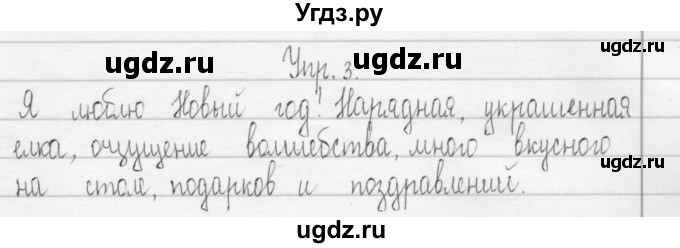 Угдз.ру
ugdz.ru ugdz.ru ugdz.ru
Упр. 3.
Я люблю Новый год! Нарядная, украшенная
елка, ощущение волшебства, много вкусного
на столе, подарков и поздравлений.
ugdz.ru ugdz.ru ugdz.ru
ugdz.ru